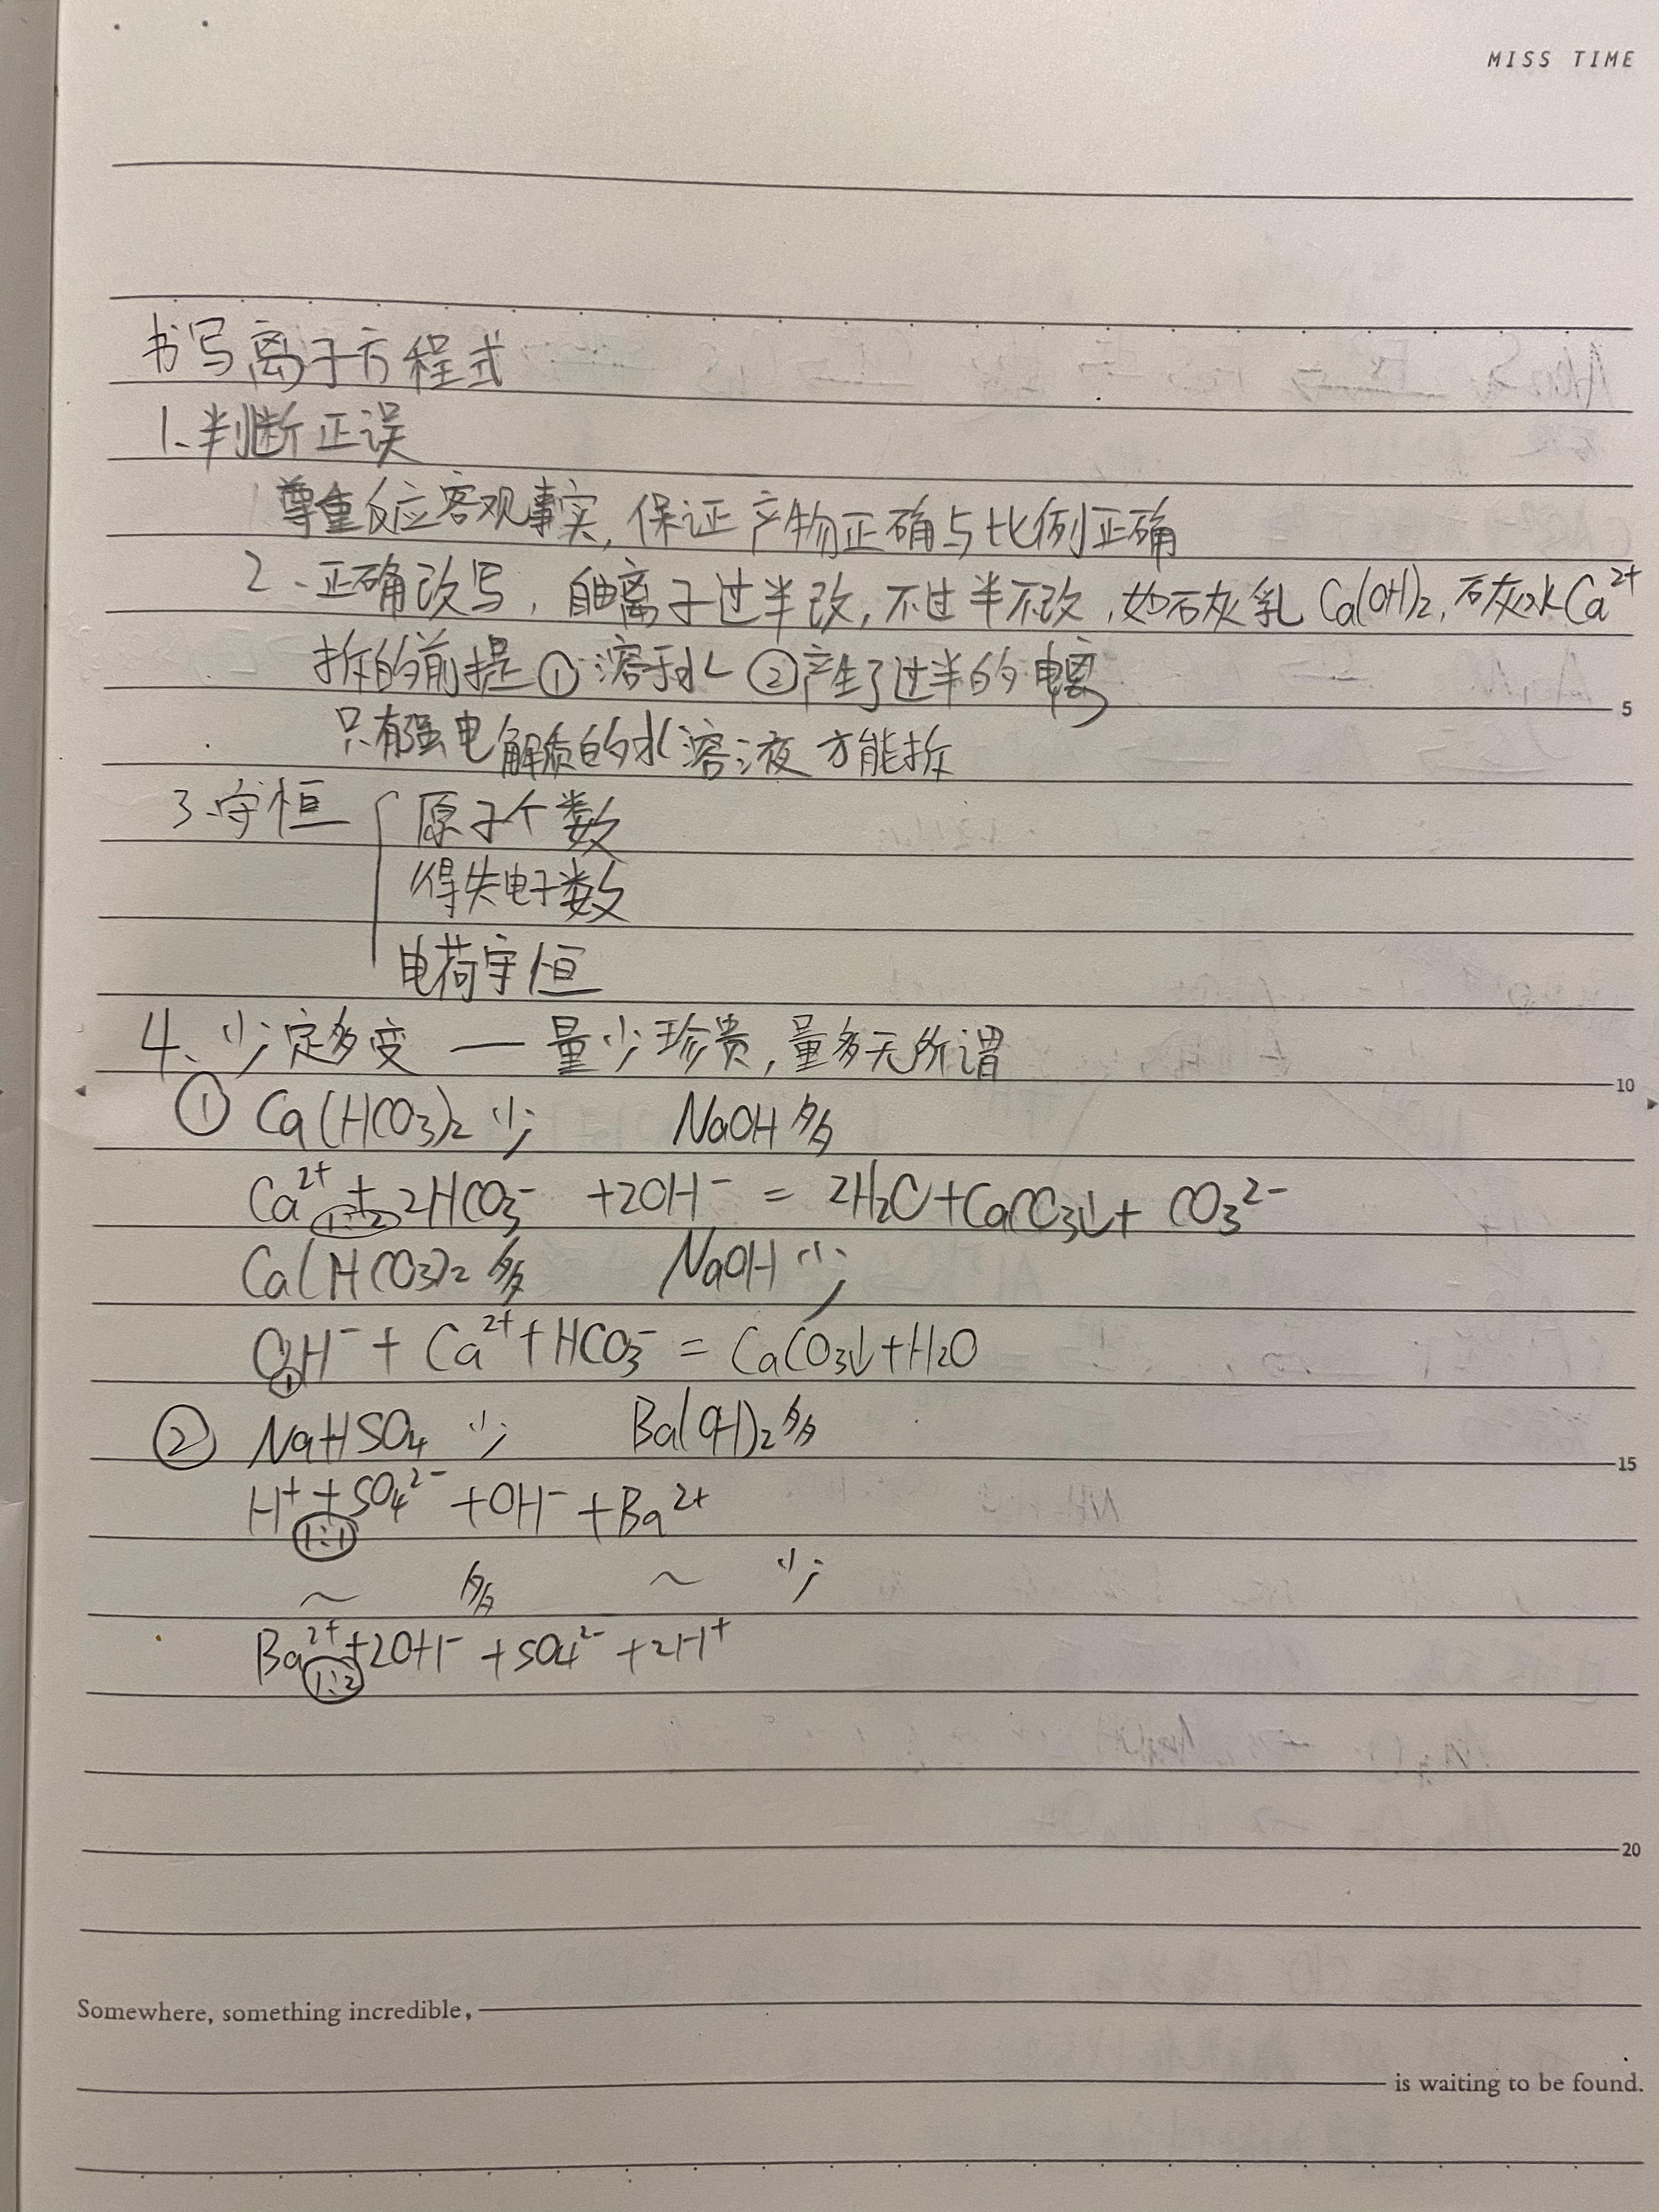 MISS TIME
书写离子方程式
1.判断正误
尊重反应客观事实,保证产物正确与比例正确
2.正确改写,电离子过半改,不过半不改,如石灰乳Ca(OH)₂,石灰水Ca²⁺
拆的前提①溶于水②产生了过半的电离
只有强电解质的水溶液才能拆
5
3.守恒{原子个数
得失电子数
电荷守恒
4、少定多变—量少珍贵,量多无所谓
10
①Ca(HCO₃)₂少 NaOH多
Ca²⁺+2HCO₃⁻+2OH⁻=2H₂O+CaCO₃↓+CO₃²⁻
1:2
Ca(HCO₃)₂多 NaOH少
OH⁻+Ca²⁺+HCO₃⁻=CaCO₃↓+H₂O
1
②NaHSO₄少 Ba(OH)₂多
15
H⁺+SO₄²⁻+OH⁻+Ba²⁺
1:1
~ 多 ~ 少
Ba²⁺+2OH⁻+SO₄²⁻+2H⁺
1:2
20
Somewhere, something incredible,
is waiting to be found.